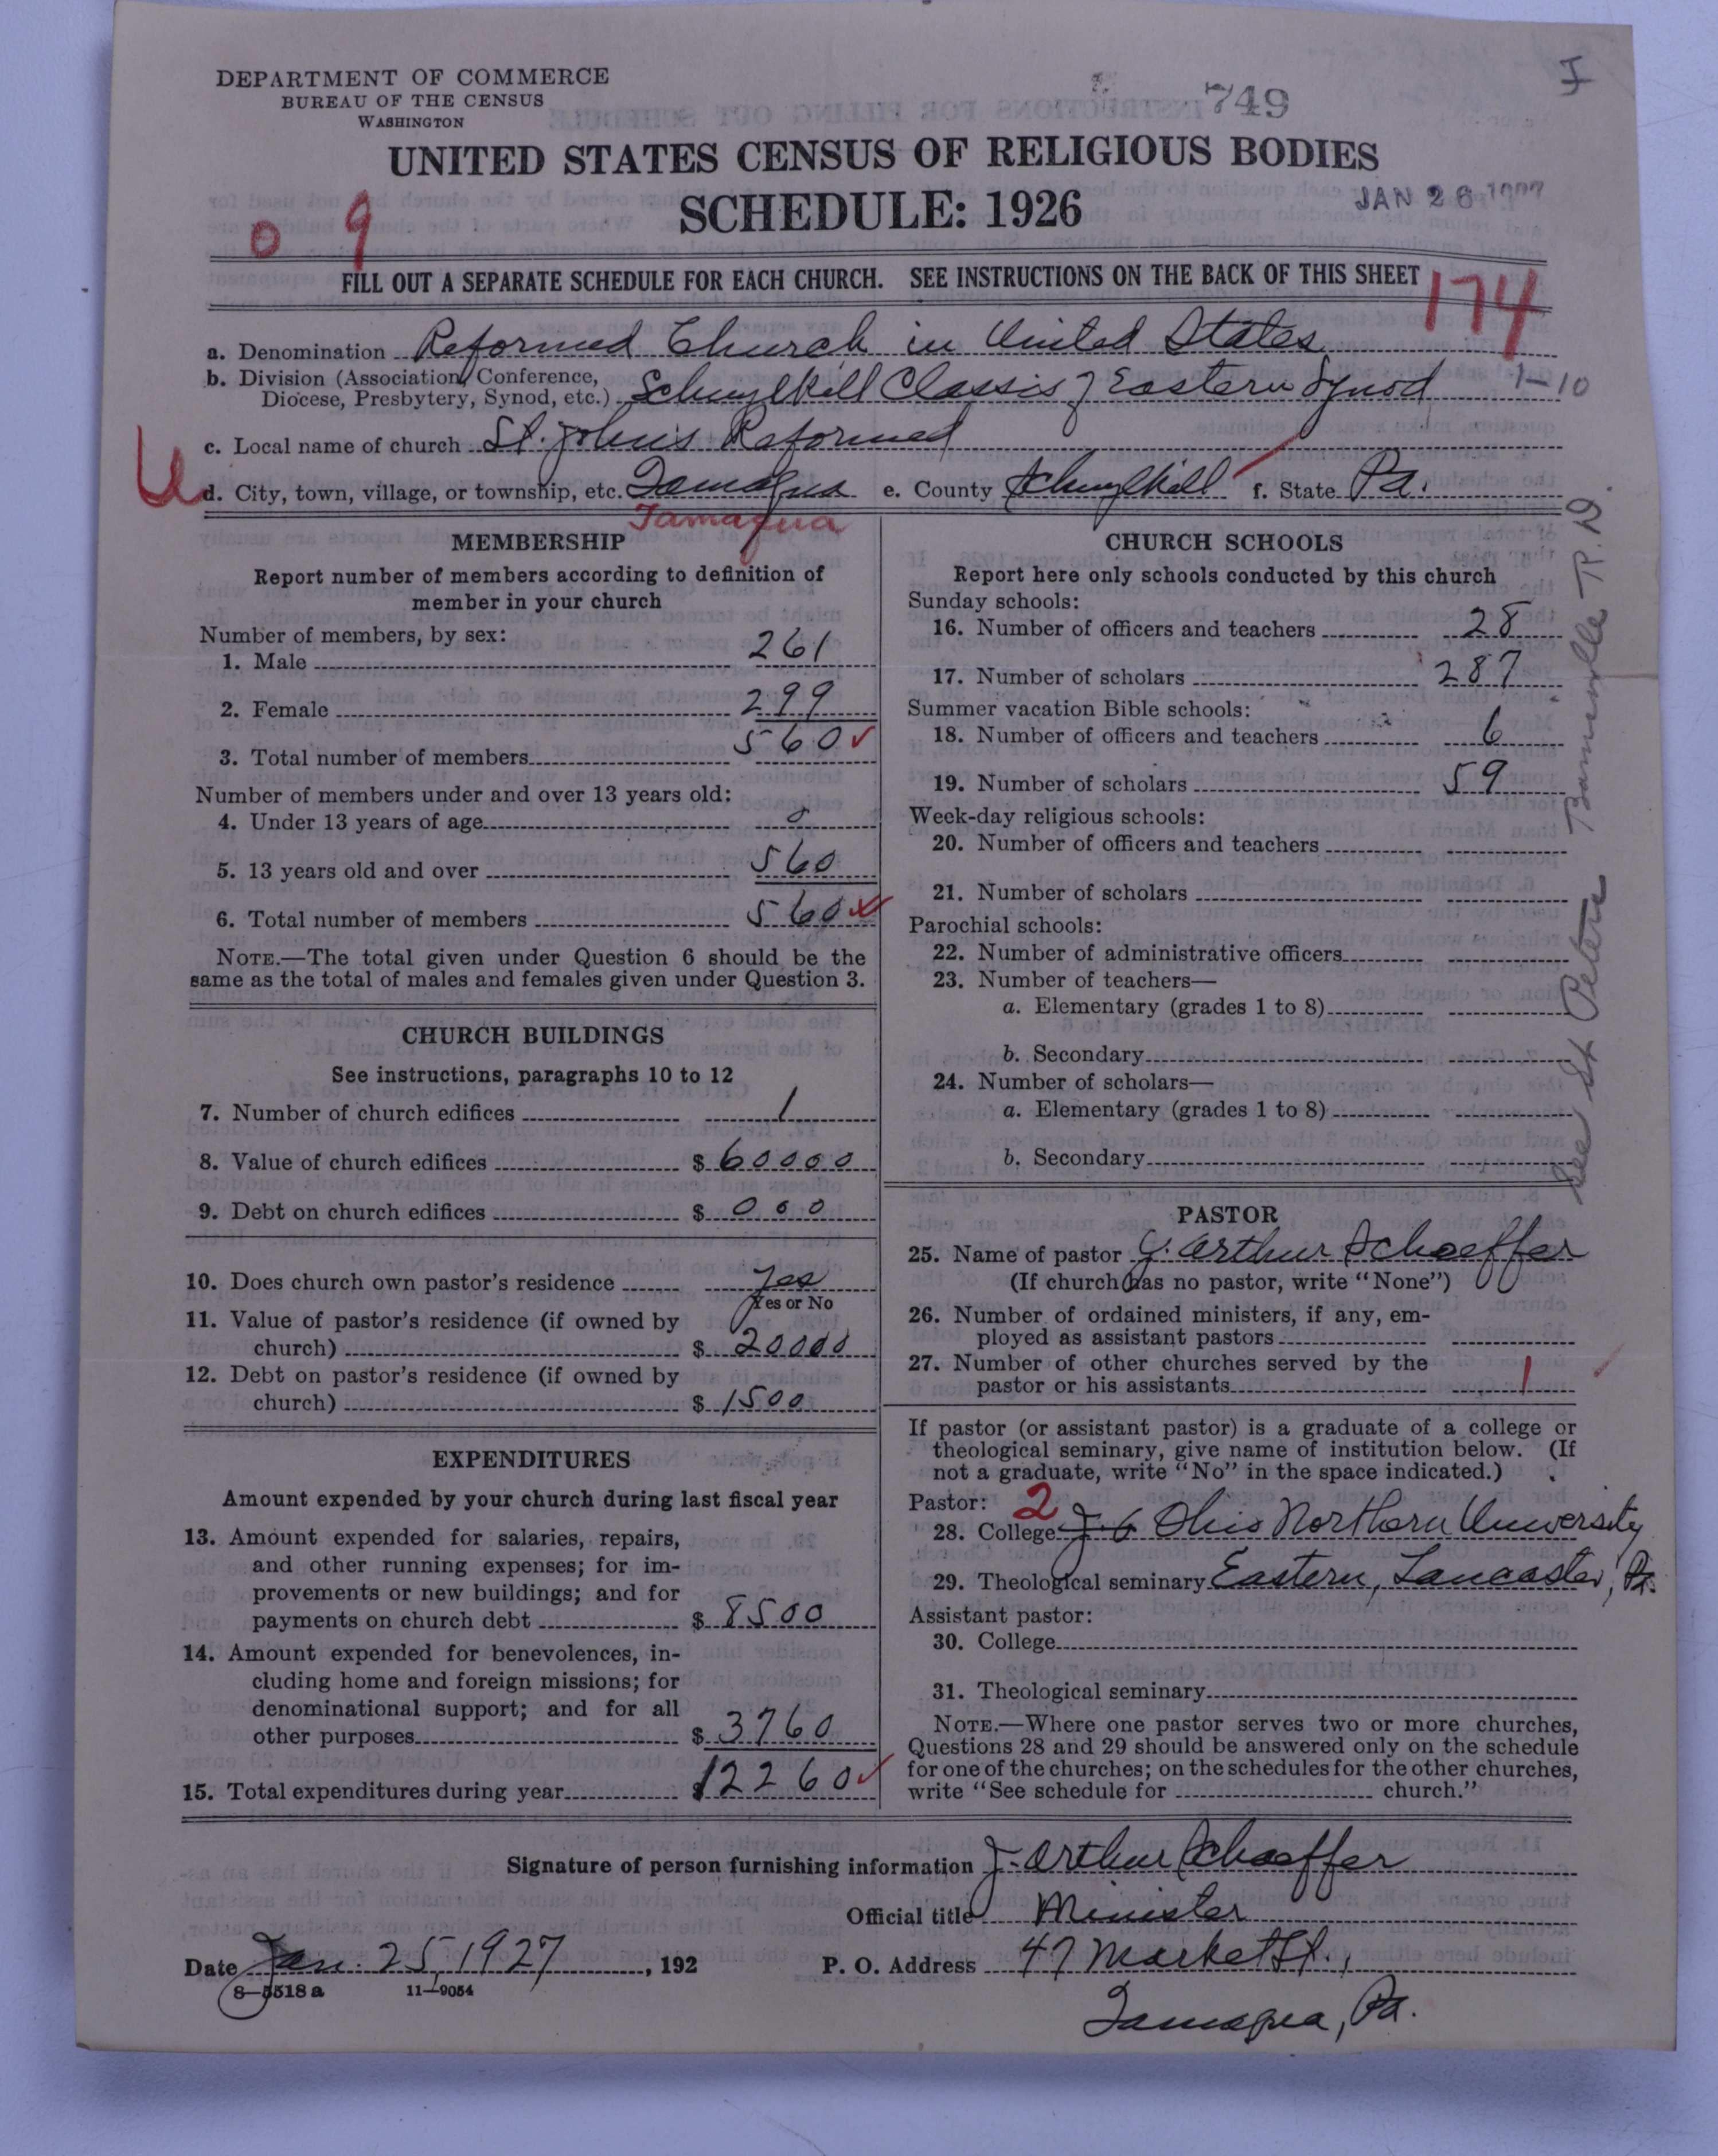 DEPARTMENT OF COMMERCE
BUREAU OF THE CENSUS
WASHINGTON
749
UNITED STATES CENSUS OF RELIGIOUS BODIES
SCHEDULE: 1926
JAN 26
0 9
FILL OUT A SEPARATE SCHEDULE FOR EACH CHURCH. SEE INSTRUCTIONS ON THE BACK OF THIS SHEET
174
a. Denomination Reformed Church in United States
b. Division (Association, Conference, Diocese, Presbytery, Synod, etc.) Schuylkill Classis of Eastern Synod
1-10
c. Local name of church St. John's Reformed
d. City, town, village, or township, etc. Tamaqua e. County Schuylkill f. State Pa.
Tamaqua
MEMBERSHIP
Report number of members according to definition of
member in your church
Number of members, by sex:
1. Male 261
2. Female 299
3. Total number of members 560
Number of members under and over 13 years old:
4. Under 13 years of age 0
5. 13 years old and over 560
6. Total number of members 560
NOTE.—The total given under Question 6 should be the
same as the total of males and females given under Question 3.
CHURCH BUILDINGS
See instructions, paragraphs 10 to 12
7. Number of church edifices 1
8. Value of church edifices $ 60000
9. Debt on church edifices $ 000
10. Does church own pastor's residence yes
Yes or No
11. Value of pastor's residence (if owned by
church) $ 20000
12. Debt on pastor's residence (if owned by
church) $ 1500
EXPENDITURES
Amount expended by your church during last fiscal year
13. Amount expended for salaries, repairs,
and other running expenses; for im-
provements or new buildings; and for
payments on church debt $ 8500
14. Amount expended for benevolences, in-
cluding home and foreign missions; for
denominational support; and for all
other purposes $ 3760
15. Total expenditures during year $ 12260
CHURCH SCHOOLS
Report here only schools conducted by this church
Sunday schools:
16. Number of officers and teachers 28
17. Number of scholars 287
Summer vacation Bible schools:
18. Number of officers and teachers 6
19. Number of scholars 59
Week-day religious schools:
20. Number of officers and teachers
21. Number of scholars
Parochial schools:
22. Number of administrative officers
23. Number of teachers—
a. Elementary (grades 1 to 8)
b. Secondary
24. Number of scholars—
a. Elementary (grades 1 to 8)
b. Secondary
See St Peters R. D.
PASTOR
25. Name of pastor J. Arthur Schaeffer
(If church has no pastor, write "None")
26. Number of ordained ministers, if any, em-
ployed as assistant pastors
27. Number of other churches served by the
pastor or his assistants 1
If pastor (or assistant pastor) is a graduate of a college or
theological seminary, give name of institution below. (If
not a graduate, write "No" in the space indicated.)
Pastor: 2
28. College Ohio Northern University
29. Theological seminary Eastern, Lancaster, Pa.
Assistant pastor:
30. College
31. Theological seminary
NOTE.—Where one pastor serves two or more churches,
Questions 28 and 29 should be answered only on the schedule
for one of the churches; on the schedules for the other churches,
write "See schedule for church."
Signature of person furnishing information J. Arthur Schaeffer
Official title Minister
Date Jan. 25, 1927, 192 P. O. Address 47 Market St.,
8-5518 a 11-9054
Tamaqua, Pa.